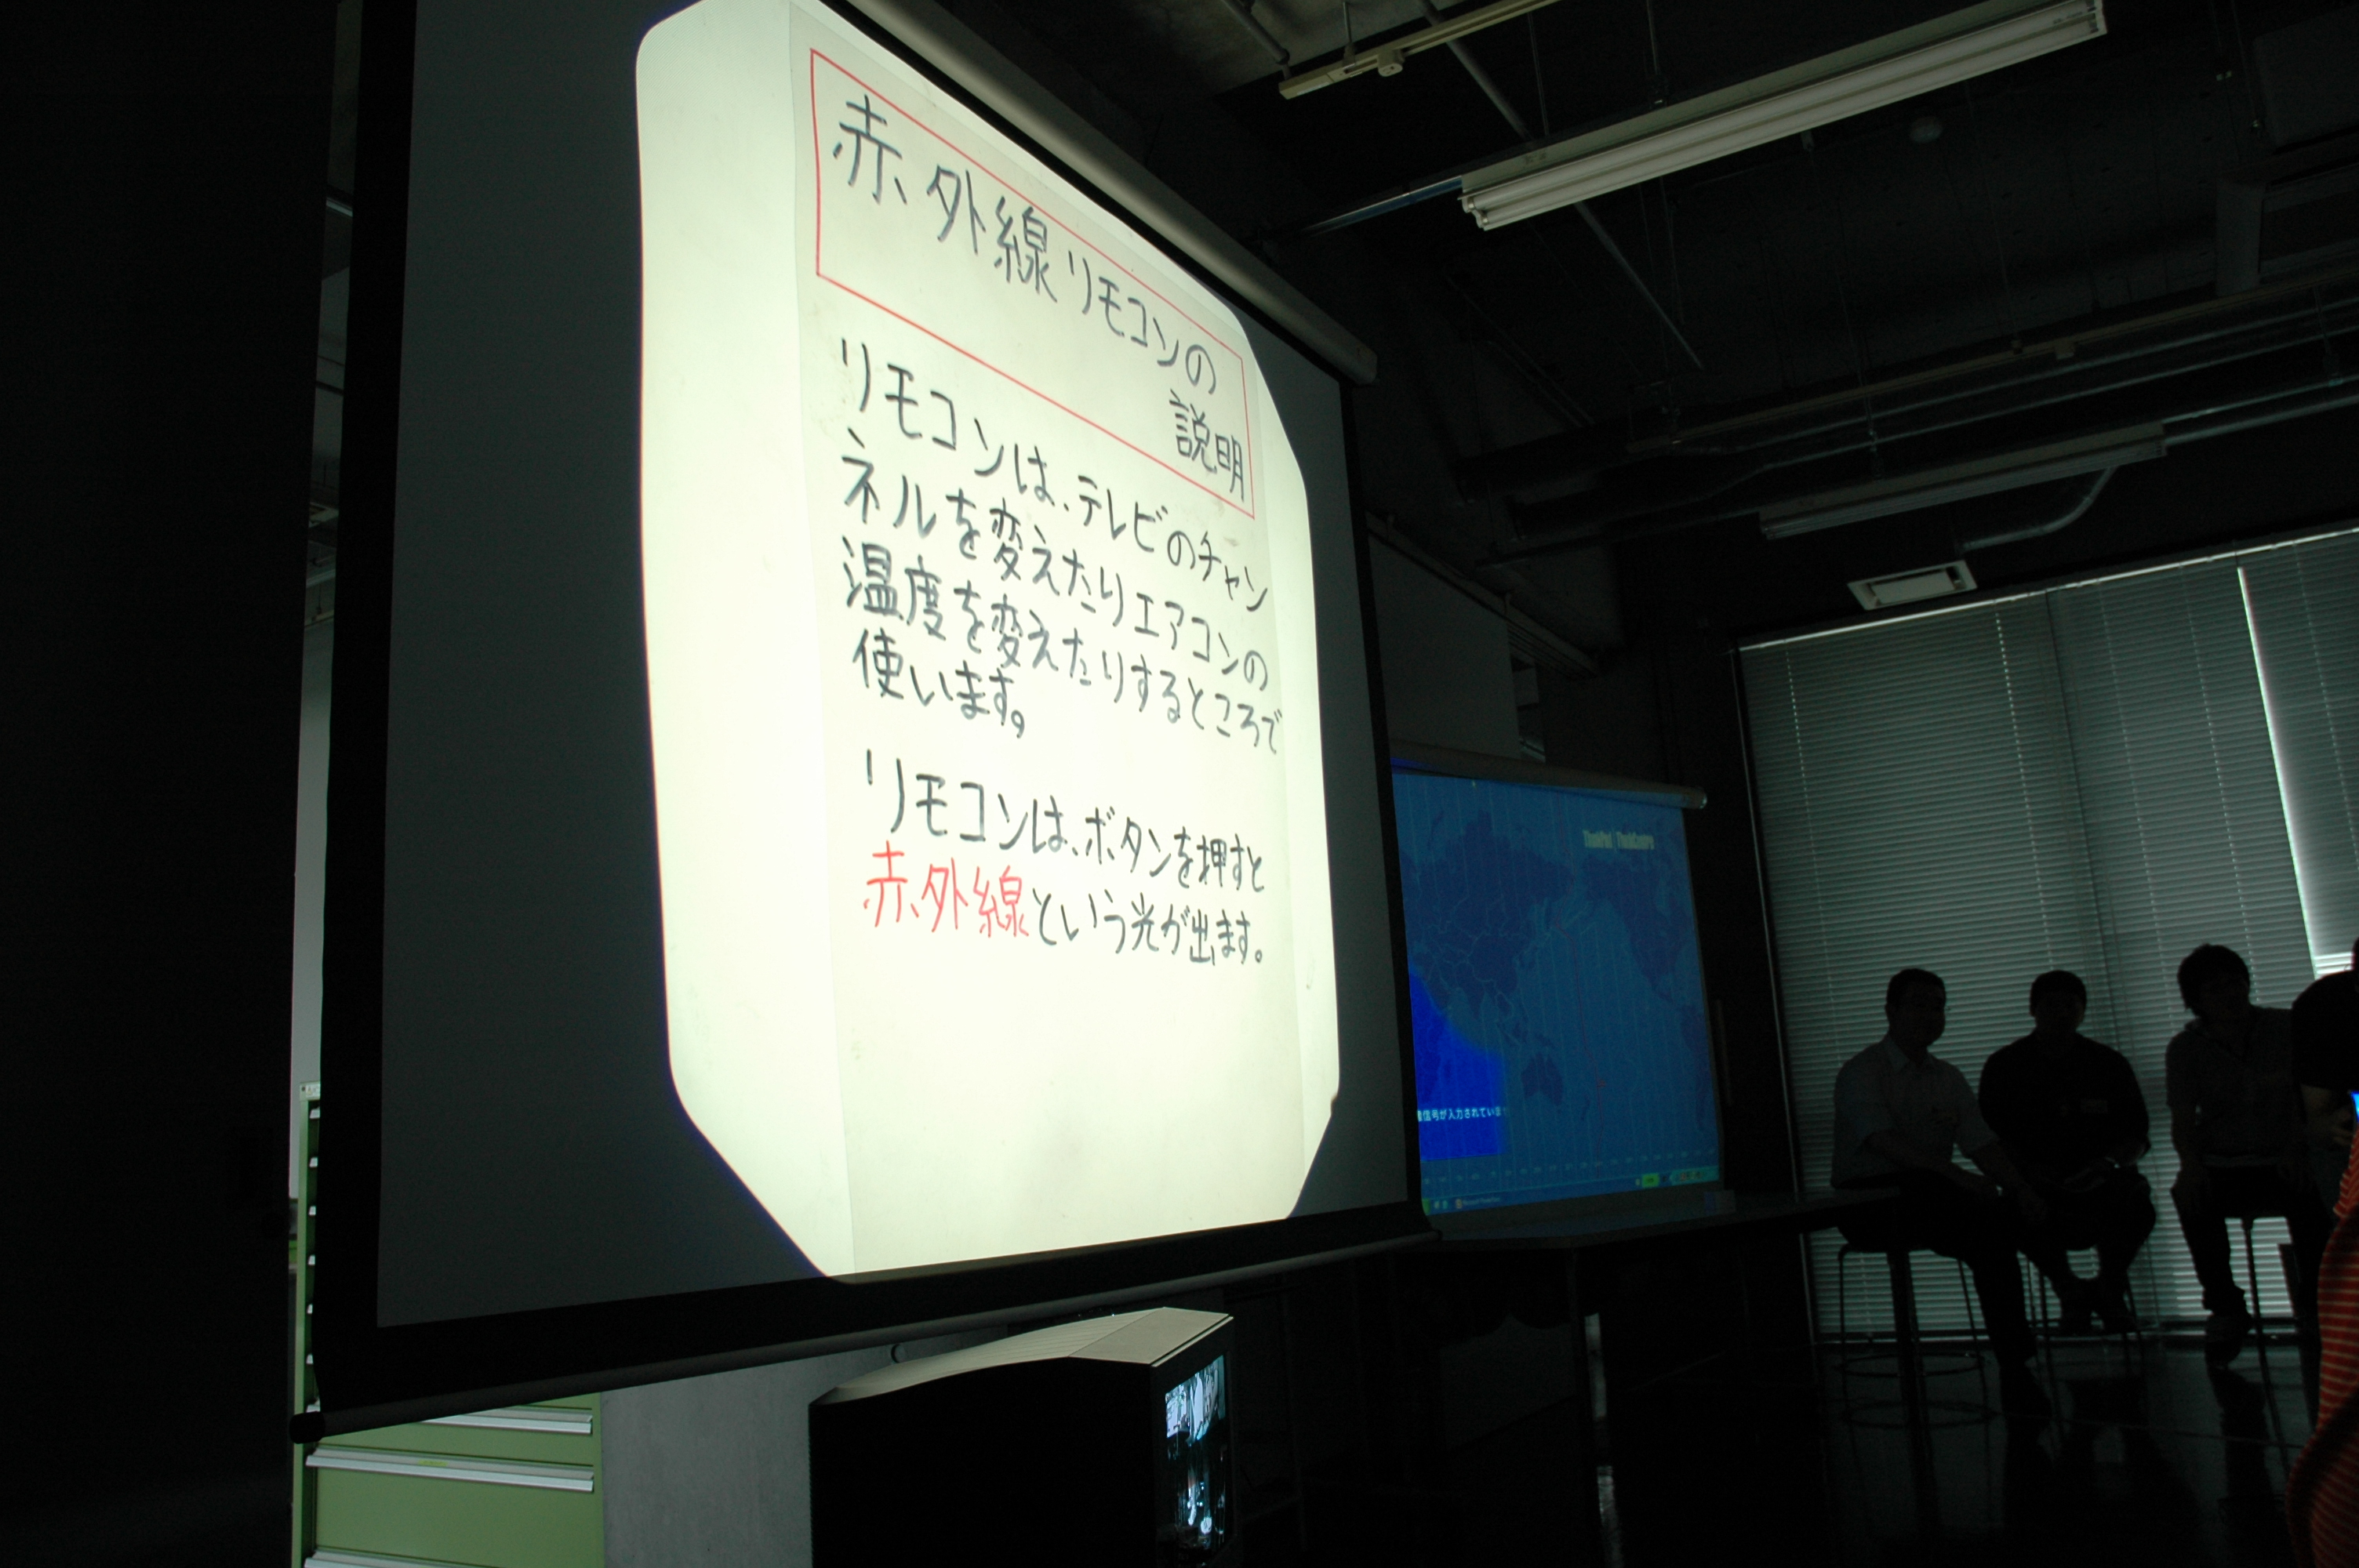 赤外線リモコンの
説明
リモコンは、テレビのチャン
ネルを変えたりエアコンの
温度を変えたりするところで
使います。
リモコンは、ボタンを押すと
赤外線という光が出ます。
ThinkPad ThinkCentre
信号が入力されていま